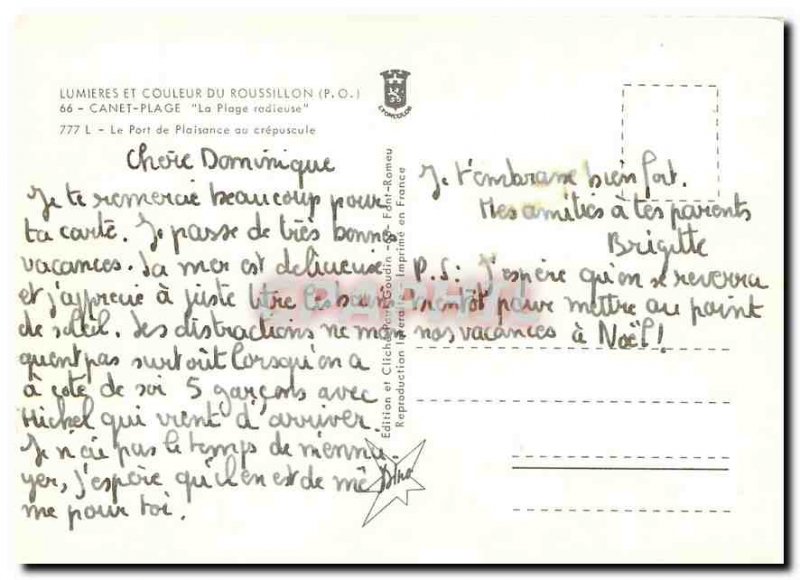 LUMIERES ET COULEUR DU ROUSSILLON (P.O.)
66 - CANET-PLAGE "La Plage radieuse"
777 L - Le Port de Plaisance au crépuscule
LYONCOLOR
Chère Dominique
Je te remercie beaucoup pour
ta carte. Je passe de très bonnes
vacances. La mer est délicieuse
et j'apprecie à juste titre les bains
de soleil. Les distractions ne man
quent pas surtout lorsqu'on a
à coté de soi 5 garçons avec
Michel qui vient d'arriver.
Je n'ai pas le temps de m'ennu-
yer, j'espère qu'il en est de mê
me pour toi.
Edition et Cliché Paul Goudin - 66 - Font-Romeu
Reproduction Interdite - Imprimé en France
Je t'embrasse bien fort.
Mes amitiés à tes parents
Brigitte
P.S: J'espère qu'on se reverra
bientôt pour mettre au point
nos vacances à Noël!